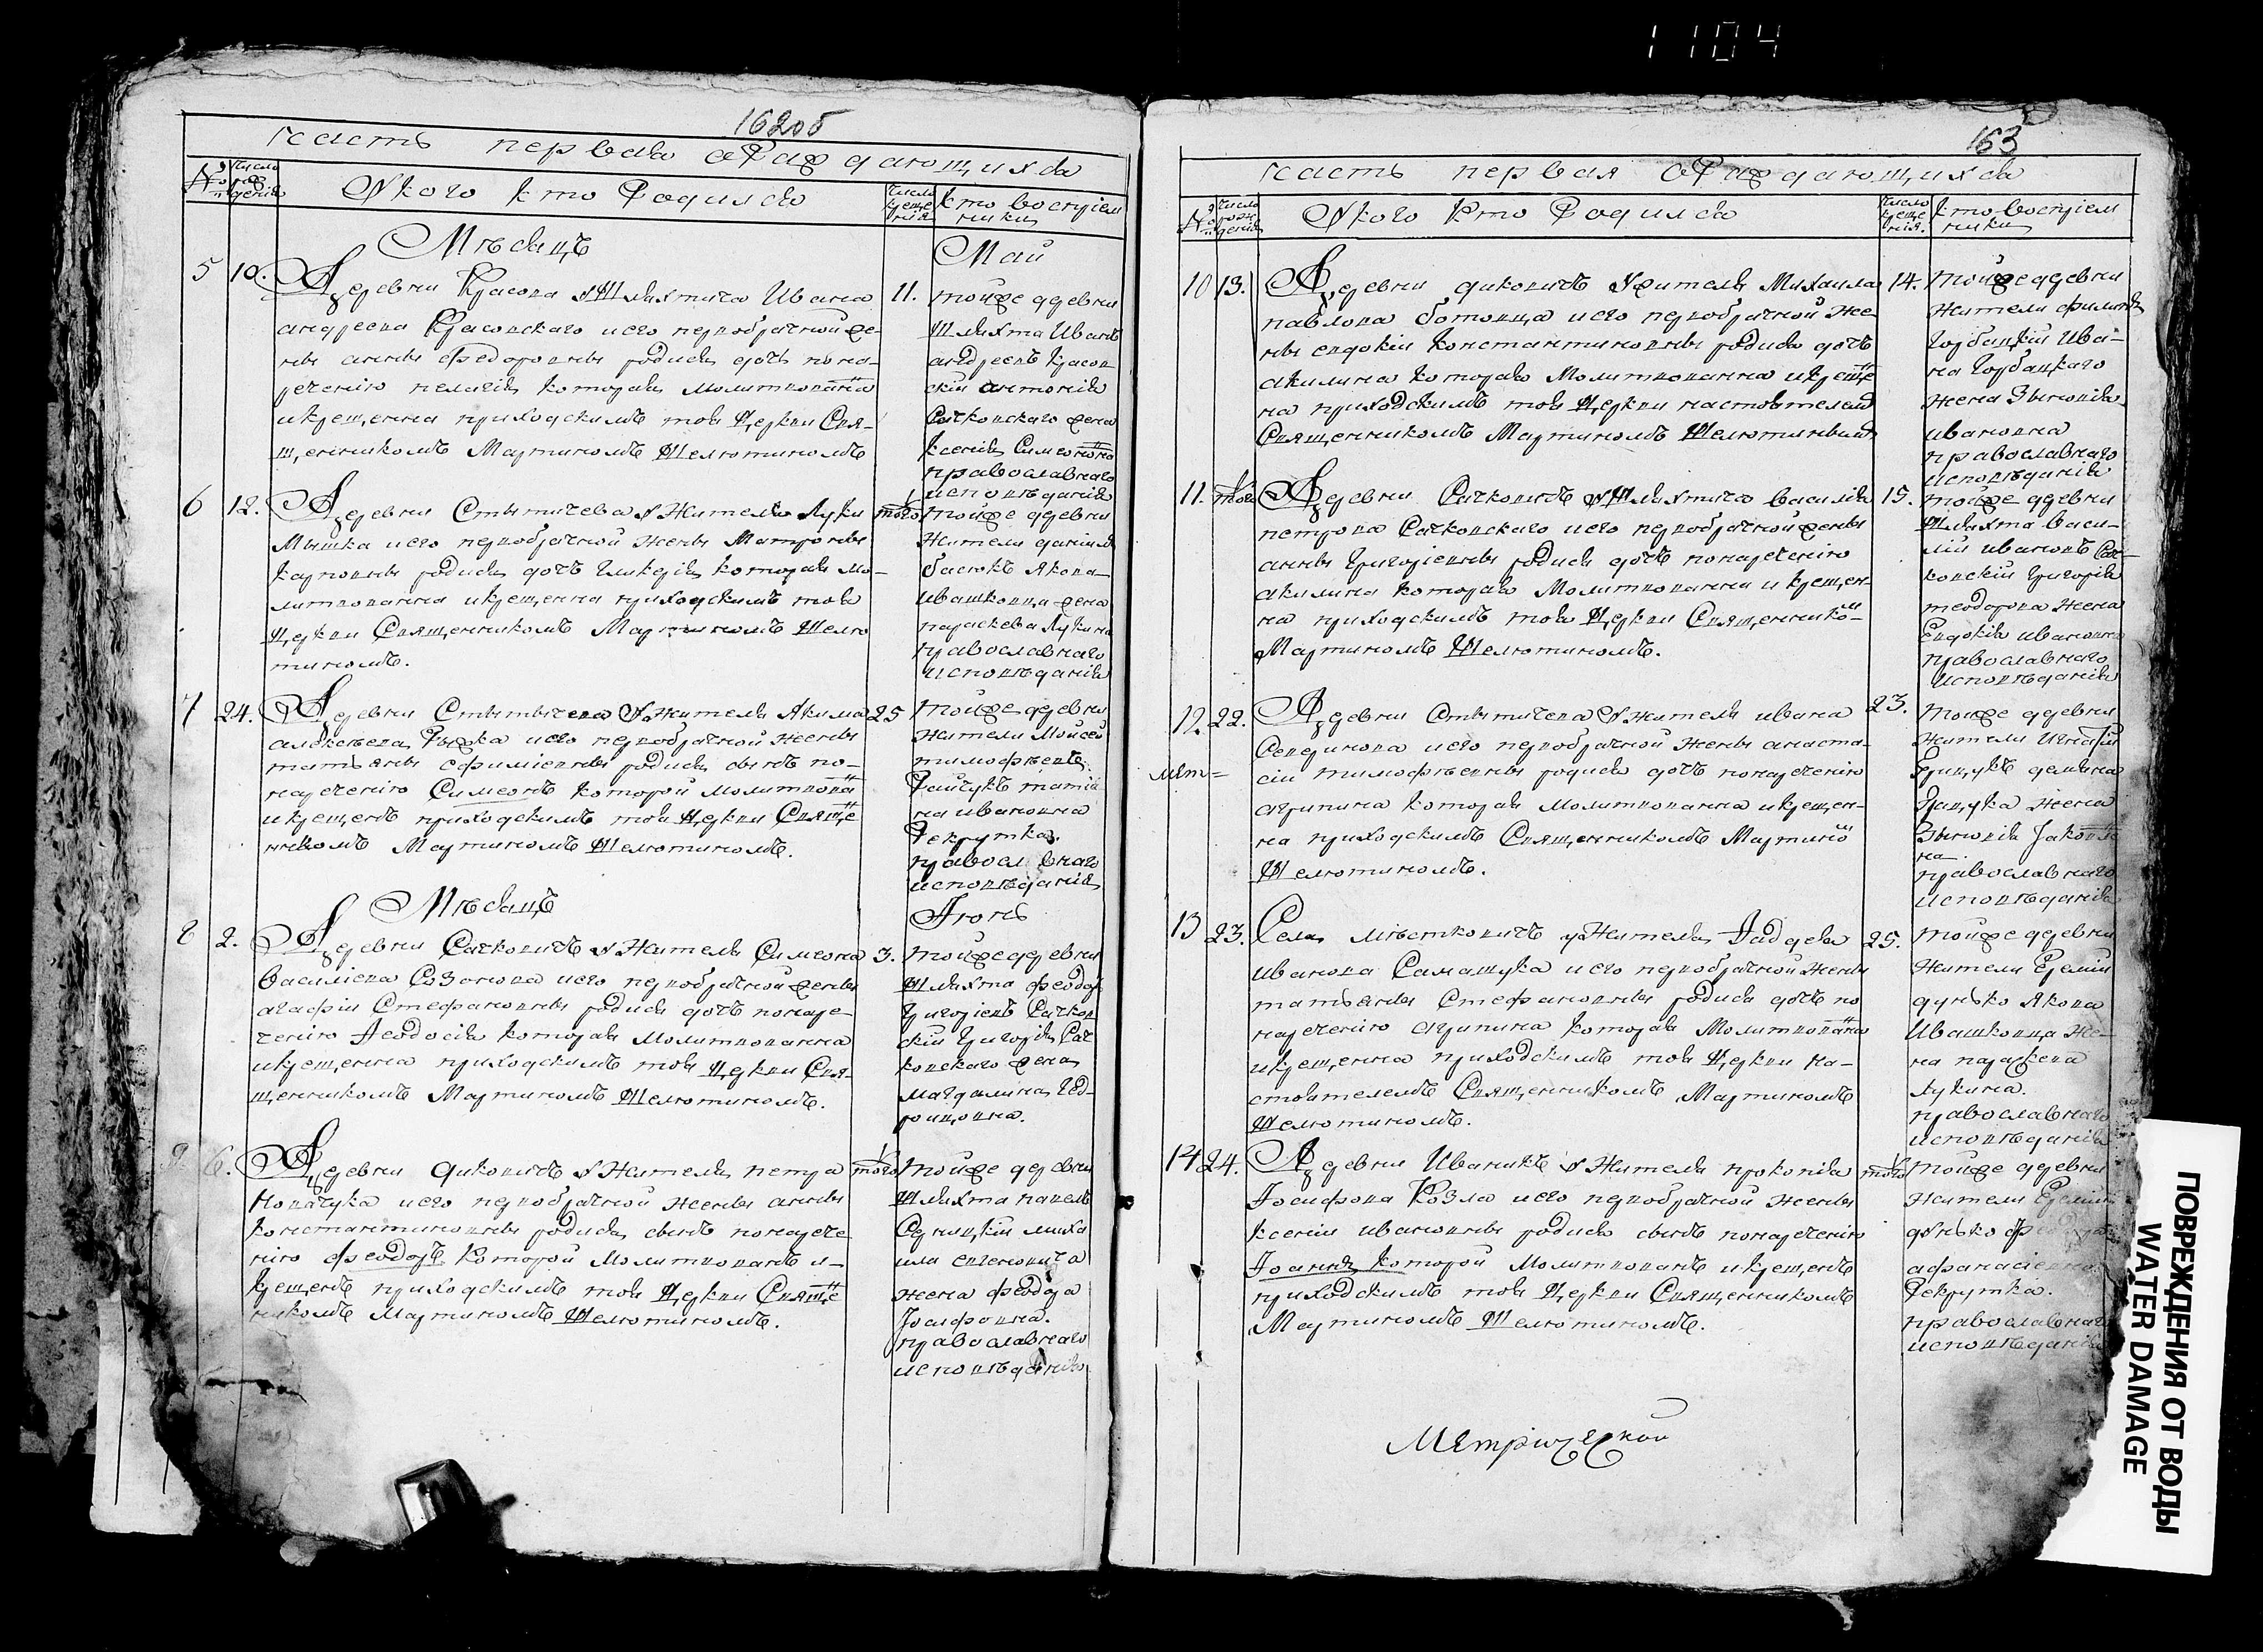 1104
162об
часть первая оРаждающихся
№ число рождения
У кого кто Родился
число крещения
кто восприемники
Месяцъ
Май
5 10.
Деревни Красова У Шляхтича Ивана
андреева Красовскаго иего первобрачной же-
ны анны федоровны родись дочь пона-
речению пелагия которая молитвованна
икрещенна приходскимъ тоя Церкви Свя-
щенникомъ Мартиномъ Шелютиномъ
11.
тойже деревни
Шляхта Иванъ
андреевъ красов
скій антонія
Сачковскаго жена
ксенія Симеоновна
православнаго
исповѣданія
6 12.
Деревни Стытичева У Жителя Луки
Мышка иего первобрачной жены Матроны
карповны родись дочь гликерія которая мо-
литвованна икрещенна приходскимъ тоя
Церкви Священникомъ Мартиномъ Шелю
тиномъ.
того
тойже деревни
Жители даніилъ
басюкъ Якова
ивашковца жена
параскева Лукина
православнаго
исповѣданія
7 24.
Деревни Стытычева У Жителя Якима
алексѣева Рыжка иего первобрачной жены
татьяны ефиміевны родись сынъ по-
наречению Симеонъ которой молитвованъ
икрещенъ приходскимъ тоя Церкви Свяще
нникомъ Мартиномъ Шелютиномъ.
25
тойже деревни
Жители Мойсей
тимофѣевъ
Райчукъ татия
на ивановна
Рекрутка.
православнаго
исповѣданія
Мѣсяцъ
Іюнь
8 2.
Деревни Сачковичъ У Жителя Симеона
василіева Созонова иего первобрачной жены
агафіи Стефановны родись дочь понаре-
чению Феодосія которая молитвованна
икрещенна приходскимъ тоя Церкви Свя-
щенникомъ Мартиномъ Шелютиномъ.
3.
тойже деревни
Шляхта феодор
григоріевъ Сачков
скій григорія Сач
ковскаго жена
магдалина
9 6.
Деревни диковичъ У Жителя петра
Новачука иего первобрачной жены анны
константиновны родись сынъ понарече-
нию феодоръ которой молитвованъ и
крещенъ приходскимъ тоя Церкви Свяще
никомъ Мартиномъ Шелютиномъ.
того
тойже деревни
Шляхта павелъ
Серницкій миха
ила евгеновича
жена феодора
Іосифовна.
православнаго
исповѣданія
163
часть первая оРаждающихся
№ число рождения
У кого кто Родился
число крещения.
кто восприемники
10 13.
Деревни диковичъ Ужителя Михаила
павлова ботовца иего первобрачной же-
ны евдокіи константиновны родись дочь
акилина которая молитвованна икреще
на приходскимъ тоя Церкви настоятелемъ
Священникомъ Мартиномъ Шелютинымъ
14.
тойже деревни
Жители филиппъ
Горбацкій Ива-
на Горбацкаго
жена Зыновія
ивановна
православнаго
исповѣданія
11. того
Деревни Сачковичъ У Шляхтича василія
петрова Сачковскаго иего первобрачной жены
анны григоріевны родись дочь понаречению
акилина которая молитвованна икрещен-
на приходскимъ тоя Церкви Священнико-
Мартиномъ Шелютиномъ.
15.
тойже деревни
Шляхта васи-
лій ивановъ Сач-
ковскій григорія
теодорова жена
Евдокія ивановна
православнаго
исповѣданія
12. 22.
Деревни Стытичева У Жителя ивана
Середикова иего первобрачной жены анаста-
сіи тимофѣевны родись дочь понаречению
агрипина которая молитвованна икрещен-
на приходскимъ Священникомъ Мартино
Шелютиномъ.
23.
тойже деревни
Жители Игнатій
Грицукъ демяна
Грицука жена
Зыновія Іаковле
на.
православнаго
исповѣданія
мет=
13 23.
Села мѣстковичъ уЖителя Фаддея
иванова Самашука иего первобрачной жены
татьяны Стефановны родись дочь по
наречению агрипина которая молитвованна
икрещенна приходскимъ тоя Церкви на-
стоятелемъ Священникомъ Мартиномъ
Шелютиномъ.
25.
тойже деревни
Жители Еремій
дунько Якова
Ивашковца же-
на параскева
лукина.
православнаго
исповѣданія
14 24.
Деревни Иваникъ У Жителя прокопія
Іосифова Козла иего первобрачной жены
ксеніи ивановны родись сынъ понаречению
Іоаннъ которой молитвованъ икрещенъ
приходскимъ тоя Церкви Священникомъ
Мартиномъ Шелютиномъ.
того
тойже деревни
Жители Еремій
дунько
афанасіевна
Рекрутка.
православнаго
исповѣданія
Метрической
ПОВРЕЖДЕНИЯ ОТ ВОДЫ
WATER DAMAGE